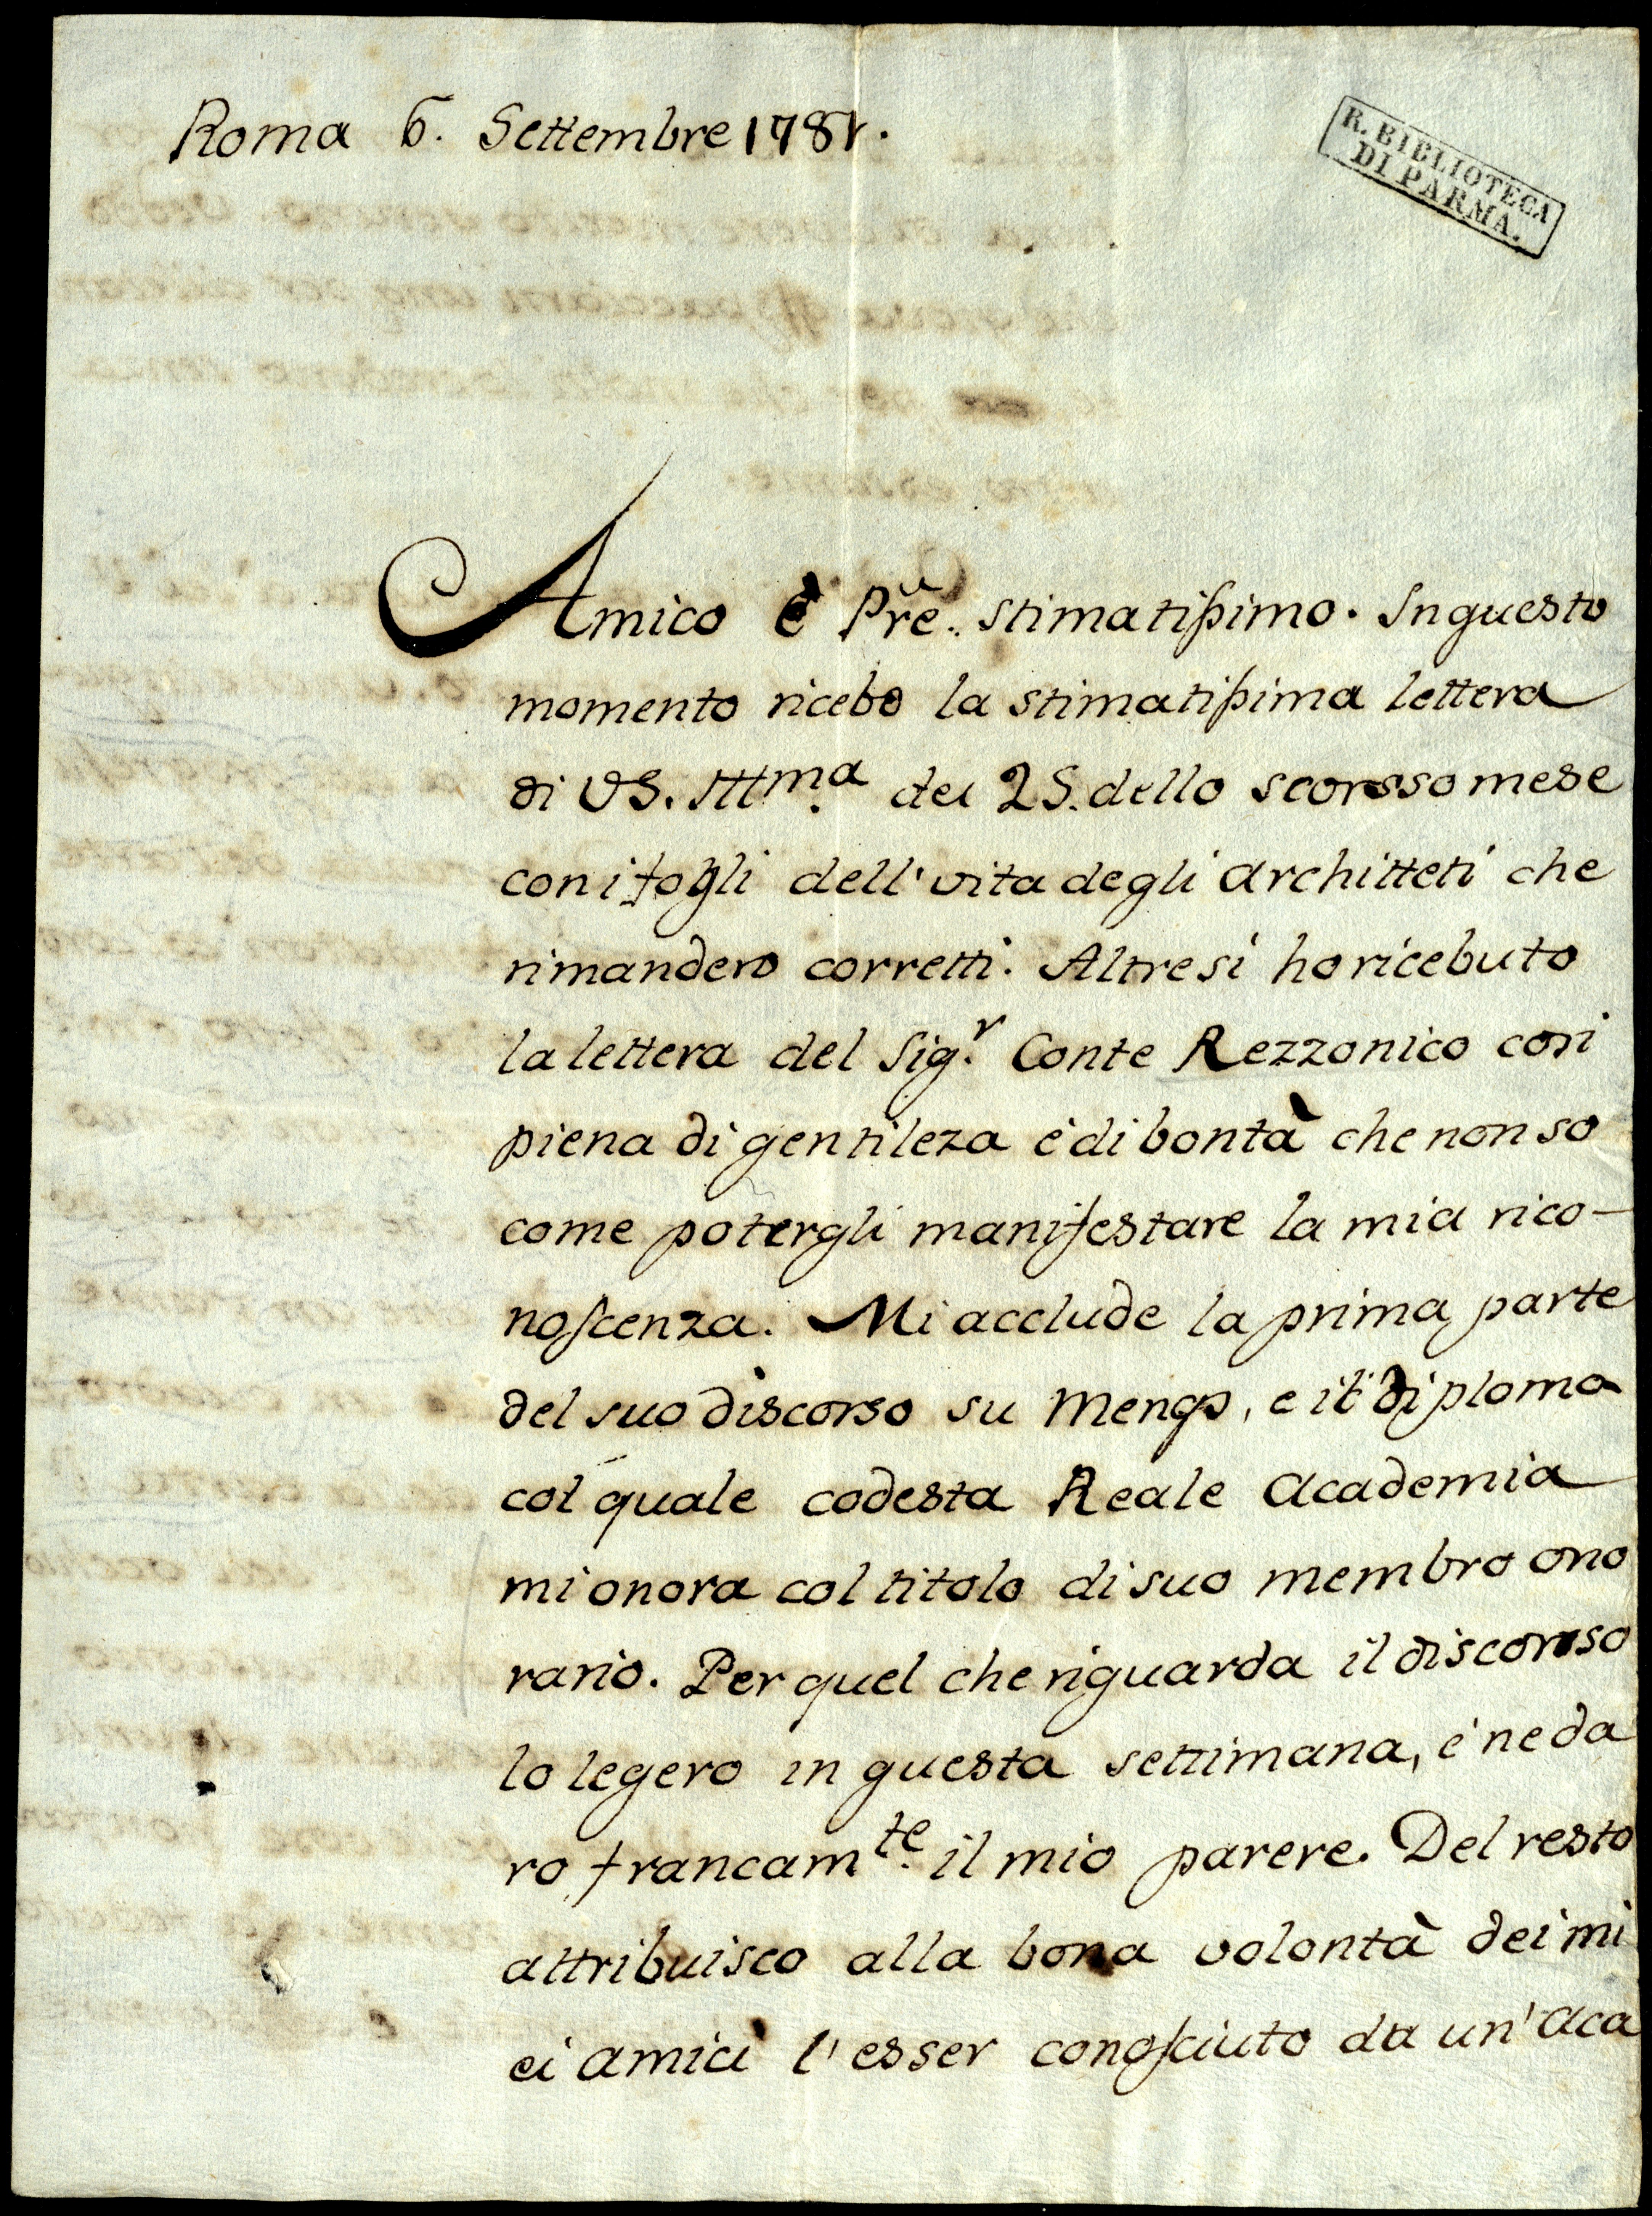 Roma 6. Settembre 1781.
R. BIBLIOTECA
DI PARMA.
Amico è Pr̃e. stimatißimo. In questo
momento ricebo la stimatißima lettera
di VS. Illma. dei 25. dello scorsso mese
con i fogli dell' vita degli Architteti che
rimandero corretti. Altresi ho ricebuto
la lettera del Sigr. Conte Rezzonico cosi
piena di gentileza è di bontà che non so
come potergli manifestare la mia rico-
noscenza. Mi acclude la prima parte
del suo discorso su Mengs, e il diploma
col quale codesta Reale Academia
mi onora col titolo di suo membro ono
rario. Per quel che riguarda il discorso
lo legero in questa settimana, è ne da
ro francamte. il mio parere. Del resto
attribuisco alla bona volontà dei mi
ei amici l'esser conosciuto da un' Aca